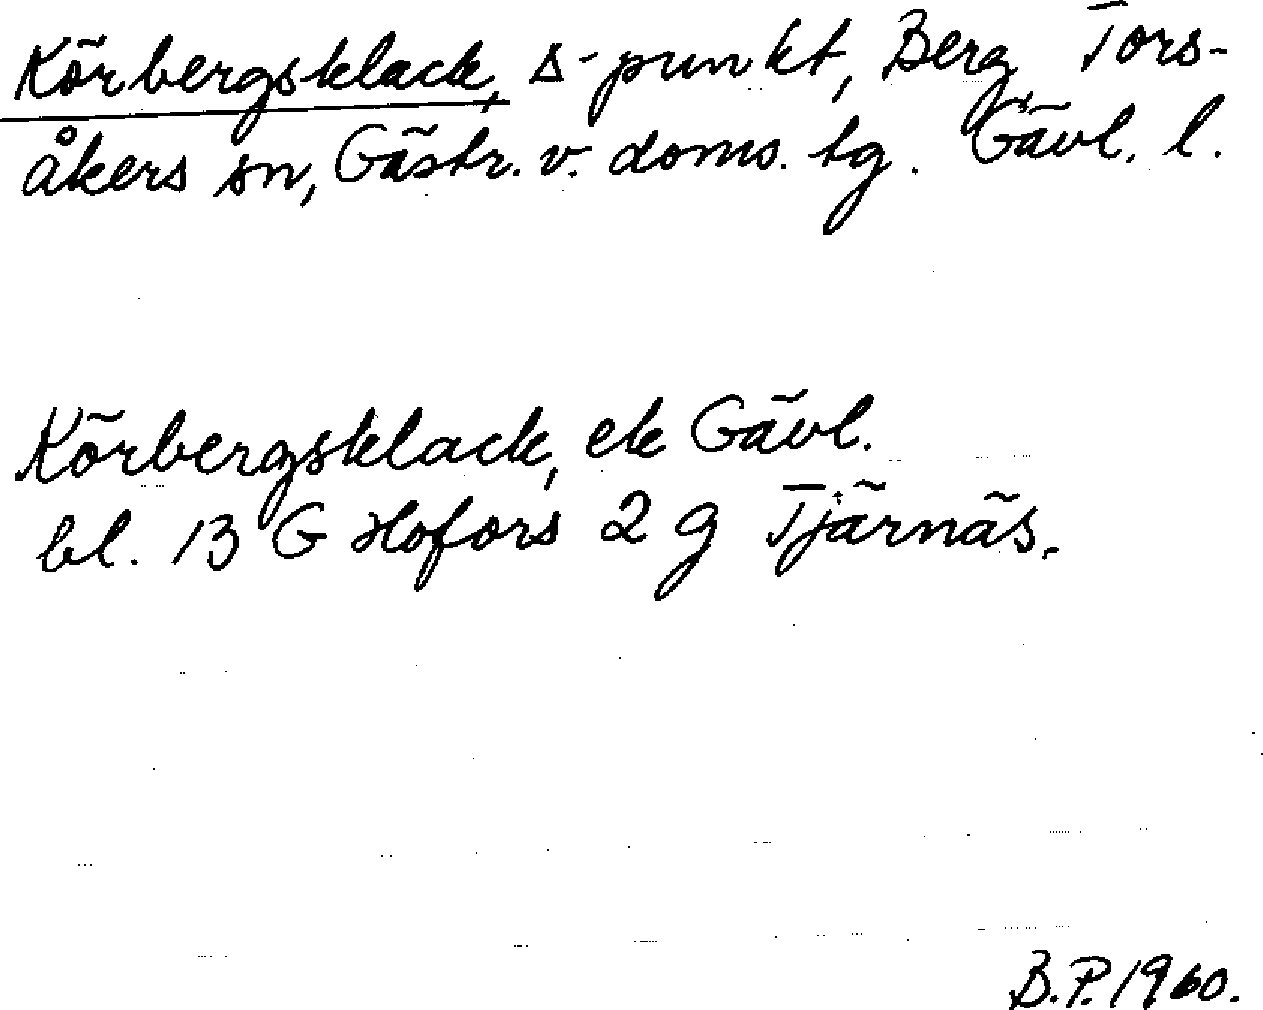 Körbergsklack, ∆-punkt, Berg Tors-
åkers sn, Gästr. v. doms. tg. Gävl. l.
Körbergsklack, ek Gävl.
bl. 13 G Hofors 2 g Tjärnäs.
B.P. 1960.